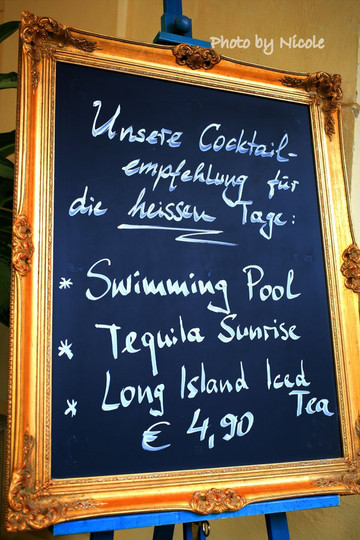 Photo by Nicole
Unsere Cocktail-
empfehlung für
die heissen Tage:
* Swimming Pool
* Tequila Sunrise
* Long Island Iced
Tea
€ 4,90